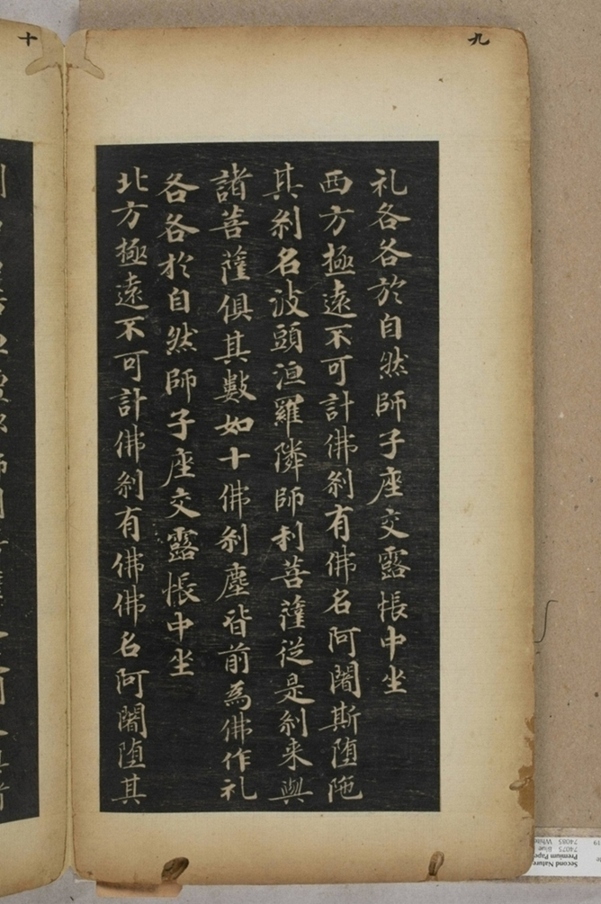 九
礼各各於自然師子座交露帳中坐
西方極遠不可計佛刹有佛名阿闍斯堕陁
其刹名波頭洹羅隣師利菩薩從是刹来與
諸菩薩俱其數如十佛刹塵皆前為佛作礼
各各於自然師子座交露帳中坐
北方極遠不可計佛刹有佛佛名阿闍堕其
十
Second Nature
Premium Pape
74075
74085 White
19